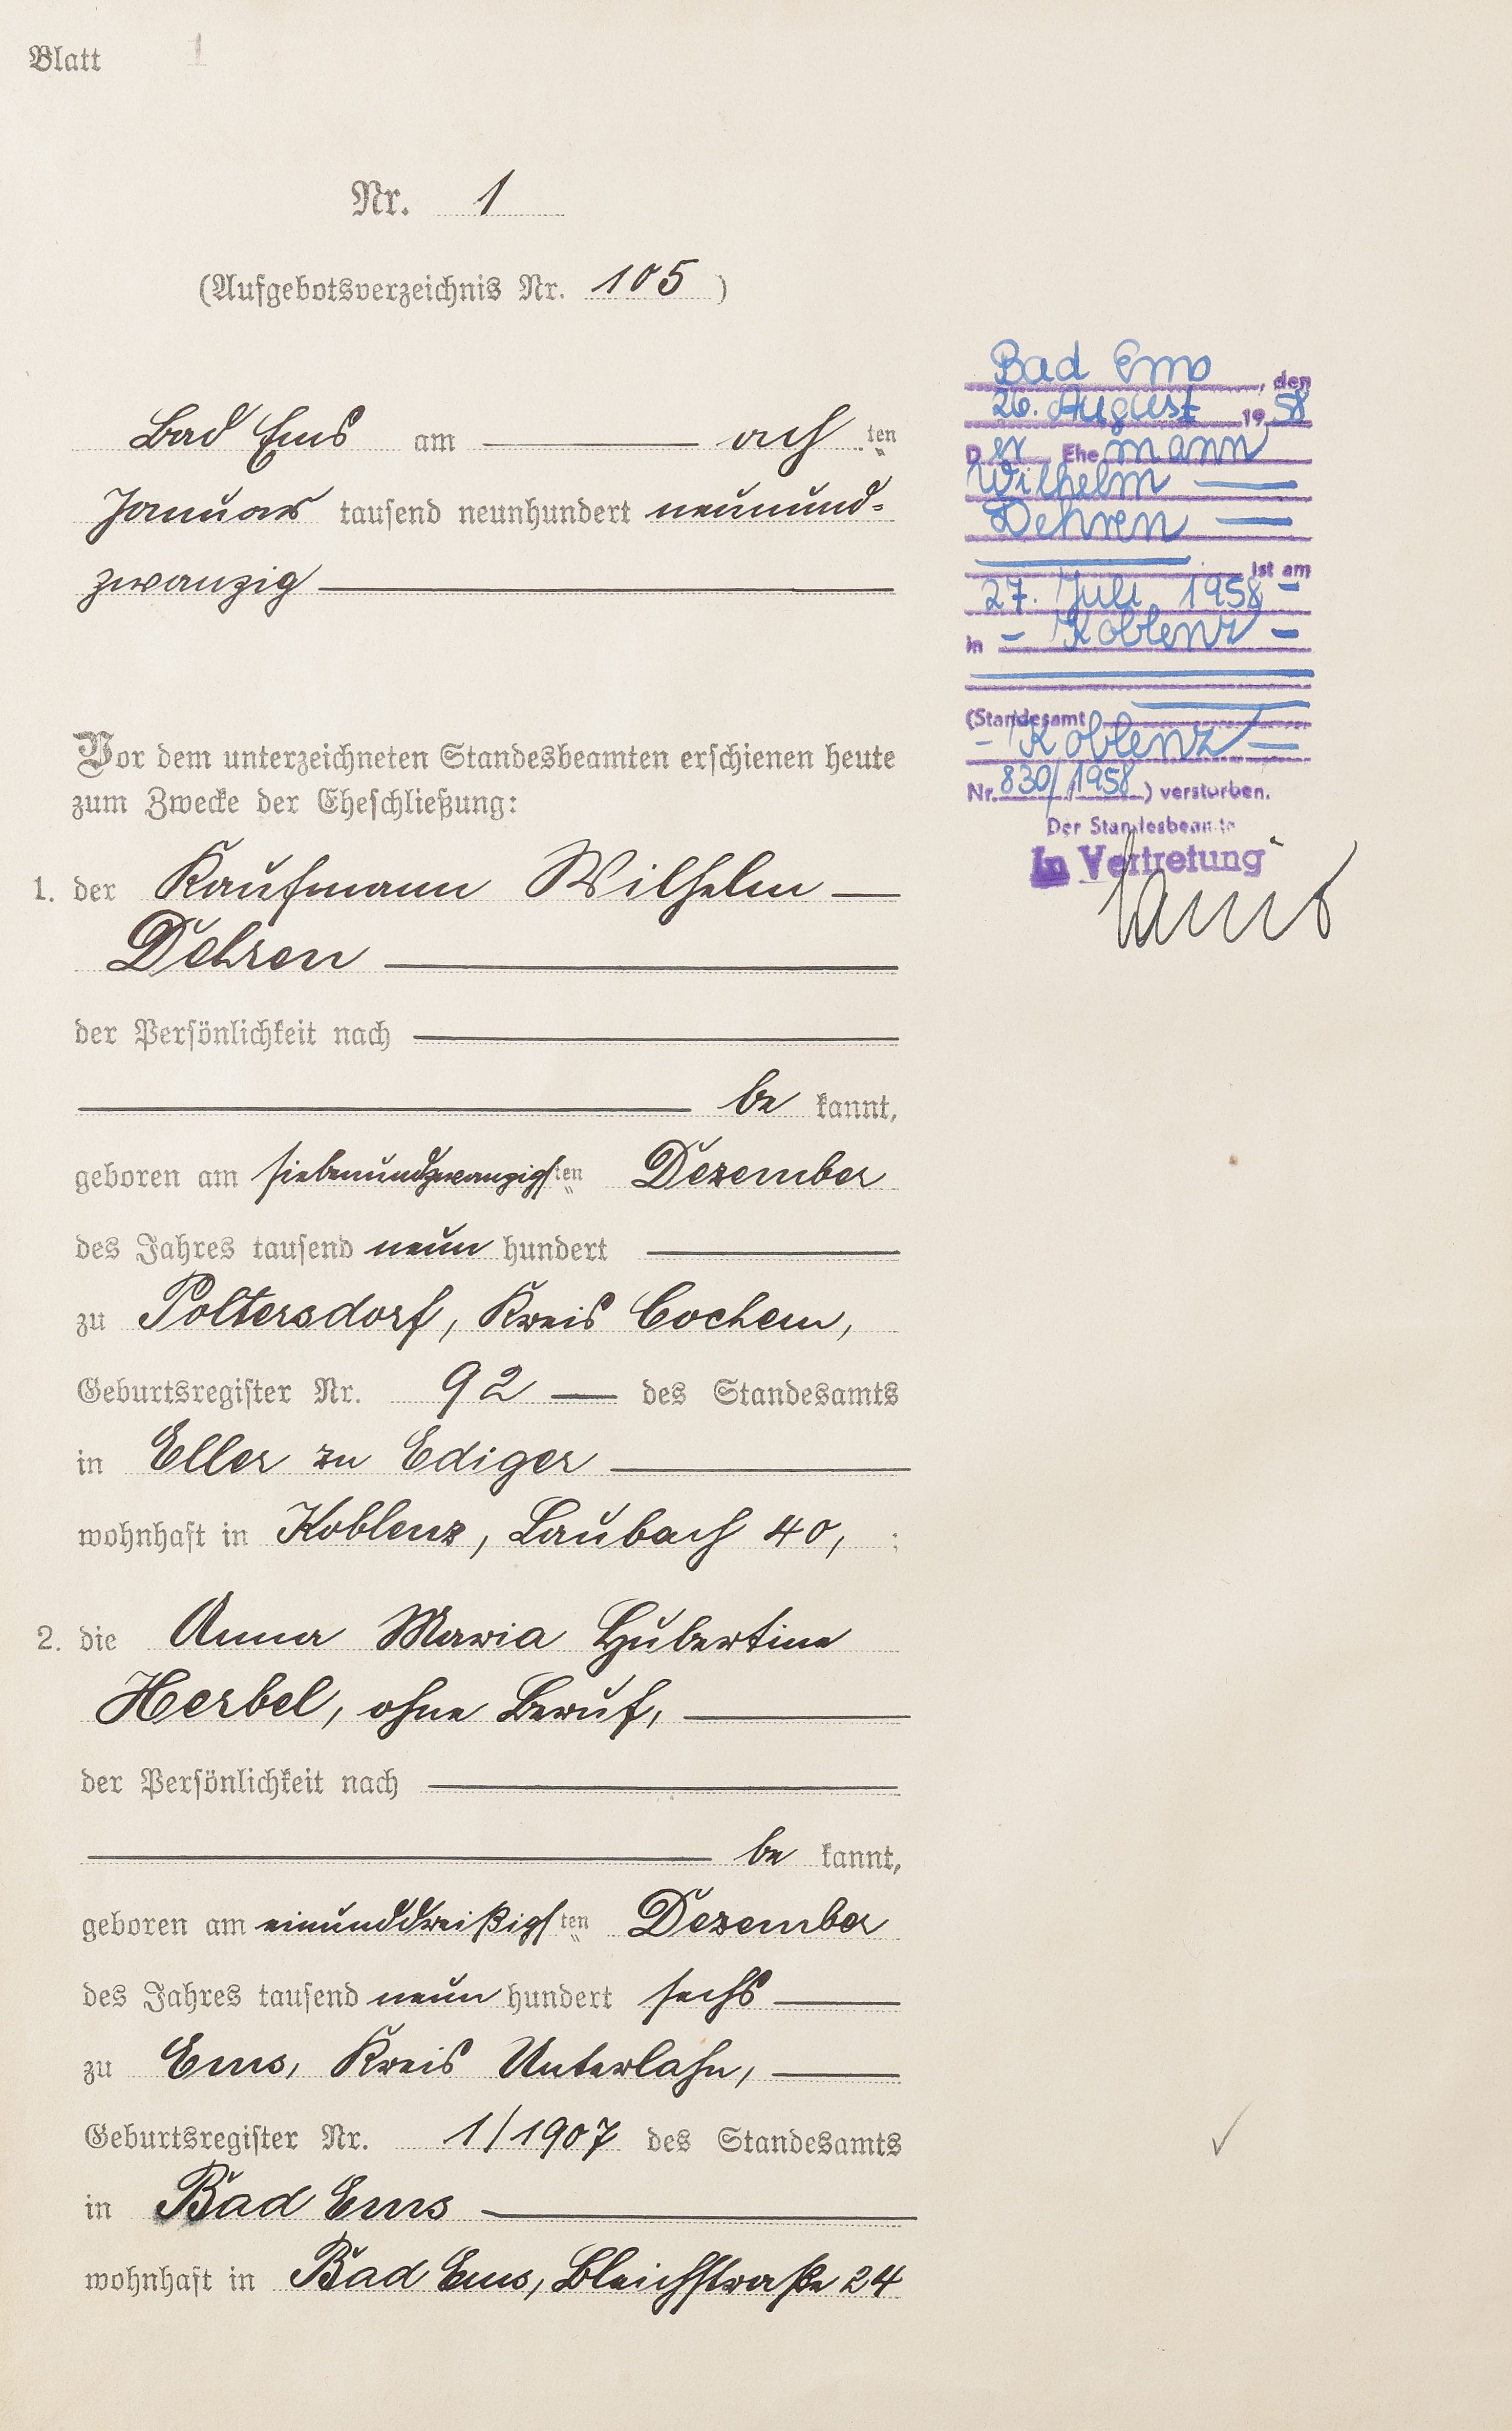 Blatt 1
Nr. 1
(Aufgebotsverzeichnis Nr. 105 )
Bad Ems am achten
Januar tausend neunhundert neunund-
zwanzig
Vor dem unterzeichneten Standesbeamten erschienen heute
zum Zwecke der Eheschließung:
1. der Kaufmann Wilhelm
Dehren
der Persönlichkeit nach
be kannt,
geboren am siebenundzwanzigsten Dezember
des Jahres tausend neun hundert
zu Poltersdorf, Kreis Cochem,
Geburtsregister Nr. 92 des Standesamts
in Eller zu Ediger
wohnhaft in Koblenz, Laubach 40, ;
2. die Anna Maria Hubertine
Herbel, ohne Beruf,
der Persönlichkeit nach
be kannt,
geboren am einunddreißigsten Dezember
des Jahres tausend neun hundert sechs
zu Ems, Kreis Unterlahn,
Geburtsregister Nr. 1/1907 des Standesamts
in Bad Ems
wohnhaft in Bad Ems, Bleichstraße 24
Bad Ems, den
26. August 1958
Der Ehemann
Wilhelm
Dehren
ist am
27. Juli 1958
in - Koblenz -
(Standesamt
- Koblenz
Nr. 830/1958) verstorben.
Der Standesbeamte
In Vertretung